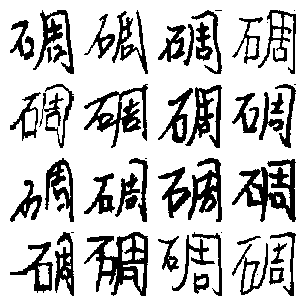 碉碉碉碉
碉碉碉碉
碉碉碉碉
碉碉碉碉